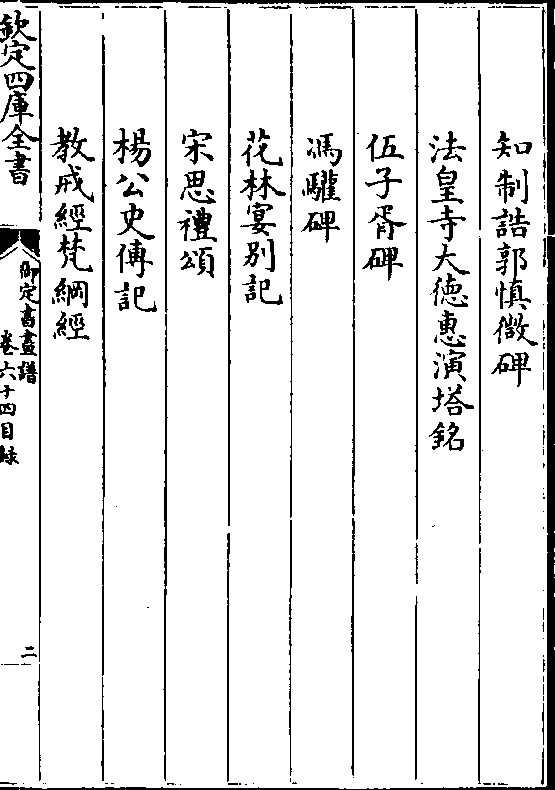 知制誥郭慎微碑
法皇寺大徳惠演塔銘
伍子胥碑
馮驩碑
花林宴別記
宋思禮頌
楊公史傳記
教戒經梵綱經
欽定四庫全書
御定書畫譜
卷六十四目録
二